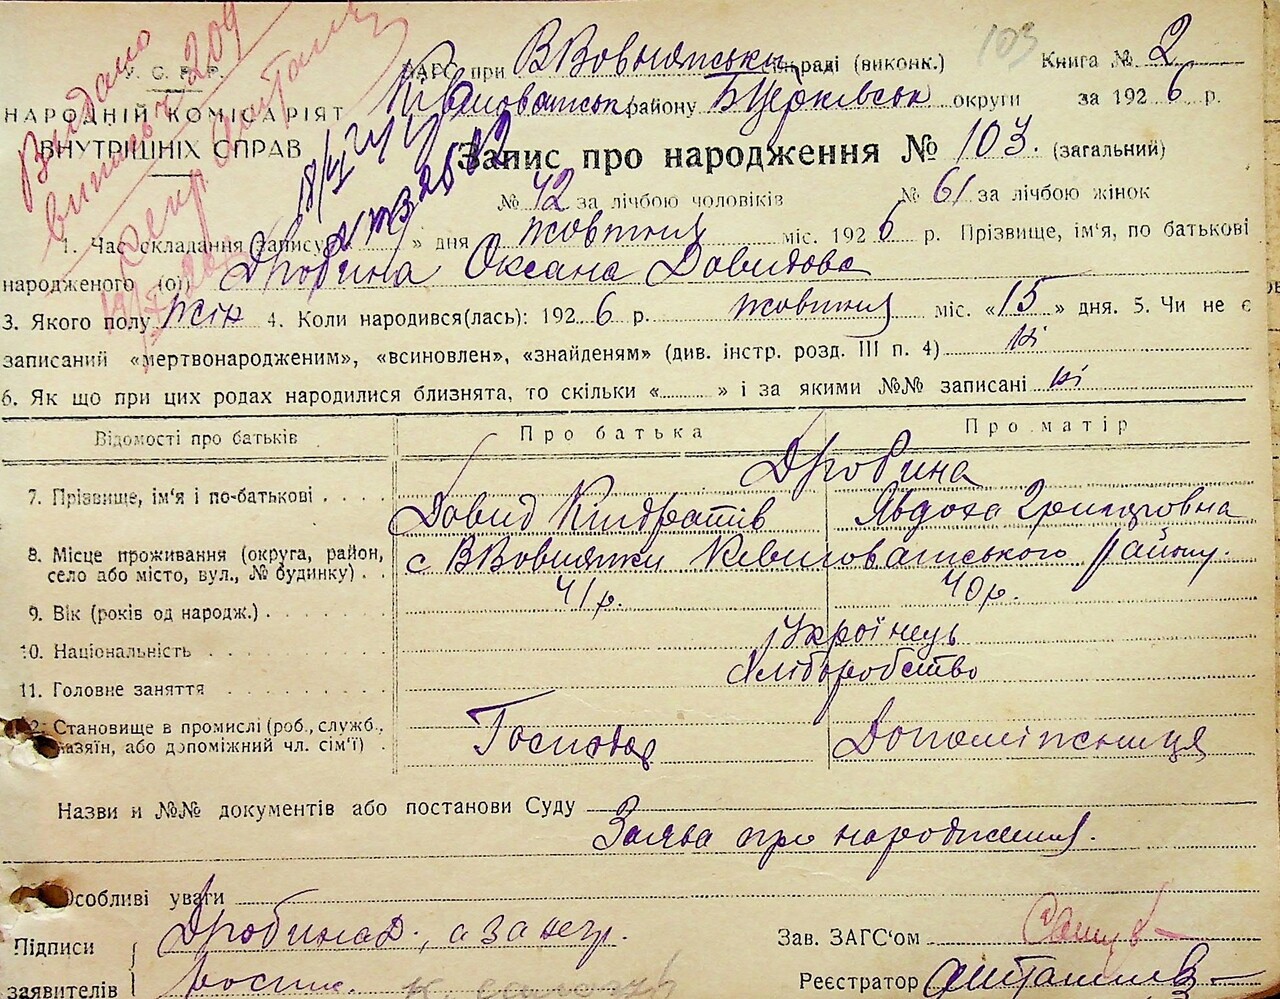 У. С. Р. Р.
НАРОДНІЙ КОМІСАРІЯТ
ВНУТРІШНІХ СПРАВ
Видано
виписку 209
103
ЗАГС при ВВовнянськ раді (виконк.) Книга № 2
району БЦерківськ округи за 1926 р.
Запис про народження № 103. (загальний)
№ 42 за лічбою чоловіків № 61 за лічбою жінок
1. Час складання запису « » дня жовтня міс. 1926 р. Прізвище, ім'я, по батькові
народженого (ої) Дробина Оксана Давидова
3. Якого полу жін 4. Коли народився(лась): 1926 р. жовтня міс. «15» дня. 5. Чи не є
записаний «мертвонародженим», «всиновлен», «знайденям» (див. інстр. розд. III п. 4) ні
6. Як що при цих родах народилися близнята, то скільки « » і за якими №№ записані ні
Відомості про батьків Про батька Про матір
Дробина
7. Прізвище, ім'я і по-батькові Давид Кіндратів Явдоха Григоровна
8. Місце проживання (округа, район,
село або місто, вул., № будинку) с ВВовнянки району.
9. Вік (років од народж.) 41 р. 40 р.
10. Національність Українець
11. Головне заняття Хліборобство
12. Становище в промислі (роб., служб.,
хазяїн, або допоміжний чл. сім'ї) Господар Допоміжниця
Назви й №№ документів або постанови Суду
Заява про народження.
Особливі уваги
Підписи
заявителів
Дробина Д., а за негр.
роспис.
Зав. ЗАГС'ом
Реєстратор